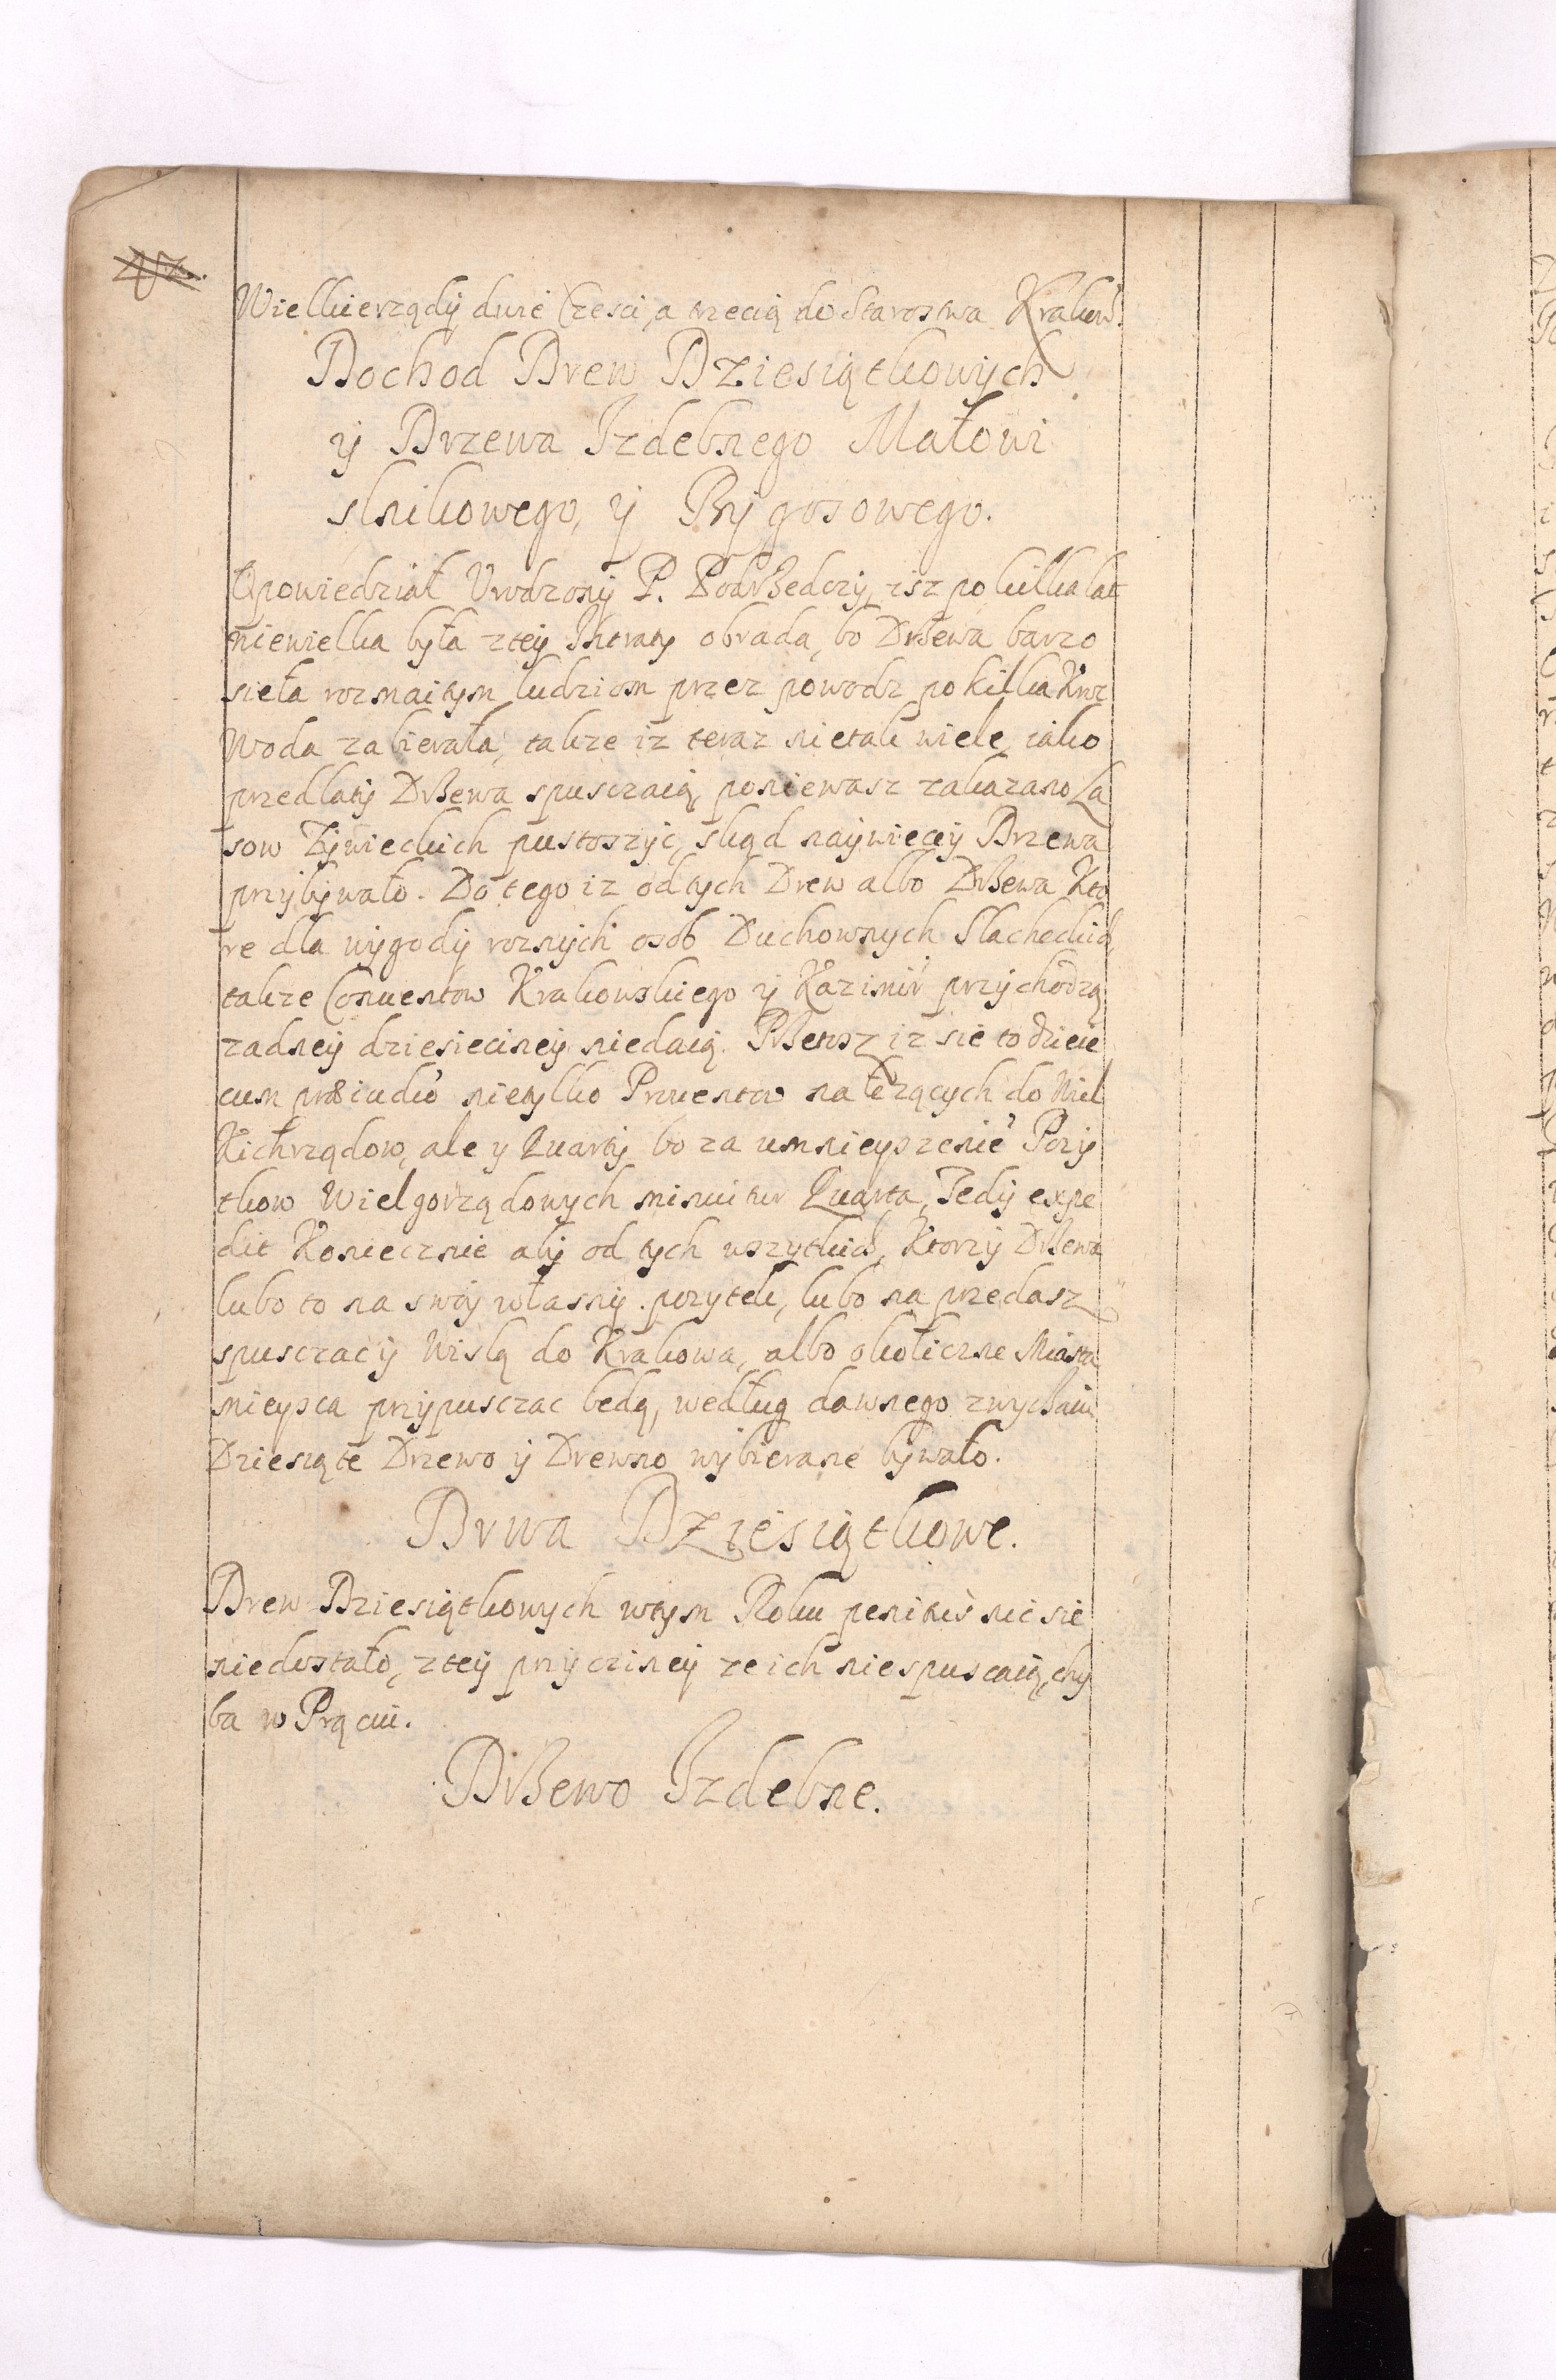 Wielkierządÿ dwie Części, a trzecią do Starostwa Krakow.
Dochod Drew Dziesiątkowÿch
ÿ Drzewa Izdebnego Małowi
slnikowego, ÿ Rÿgosowego.
Opowiedział Vrodzonÿ P. Podrzędczÿ, isz po kilka lat
niewielka była z teÿ Intratÿ obrada, bo Drzewa barzo
sieła rozmaitym ludziom przez powodz po kilka Kroc
Woda zabierała, takze iz teraz nie tak wiele, iako
przedlatÿ Drzewa spusczaią, poniewasz zakazano La
sow Zÿwieckich pustoszÿc, skąd naÿwieceÿ Drzewa
przÿbÿwało. Do tego iz od tych Drew albo Drzewa Kto
re dla wÿgodÿ roznÿch osob Duchownÿch Slacheckich
takze Conuentow Krakowskiego ÿ Kazimir przÿchodzą
zadneÿ dziesiecineÿ niedaią. Przetosz iz sie to dzieie
cum præiudio nietylko Prouentow nalezących do Wiel
Kichrządow, ale y Quartÿ, bo za umnieyszenie Pozÿ
tkow Wielgorządowych minuitur Quarta, Tedÿ expe
dit Koniecznie abÿ od tych wszytkich, Ktorzÿ Drzewa
lubo to na swoÿ własnÿ pozytek, lubo na przedasz
spusczac ÿ Wislą do Krakowa, albo okoliczne Miasta
mieysca przÿpusczac bedą, według dawnego zwyczaiu
Dziesiąte Drzewo ÿ Drewno wÿbierane bÿwało.
Drwa Dziesiątkowe.
Drew Dziesiątkowych wtym Roku penitus nic sie
niedostało, z teÿ przÿczineÿ ze ich niespuscaią, chÿ
ba w Prącui.
Drzewo Izdebne.